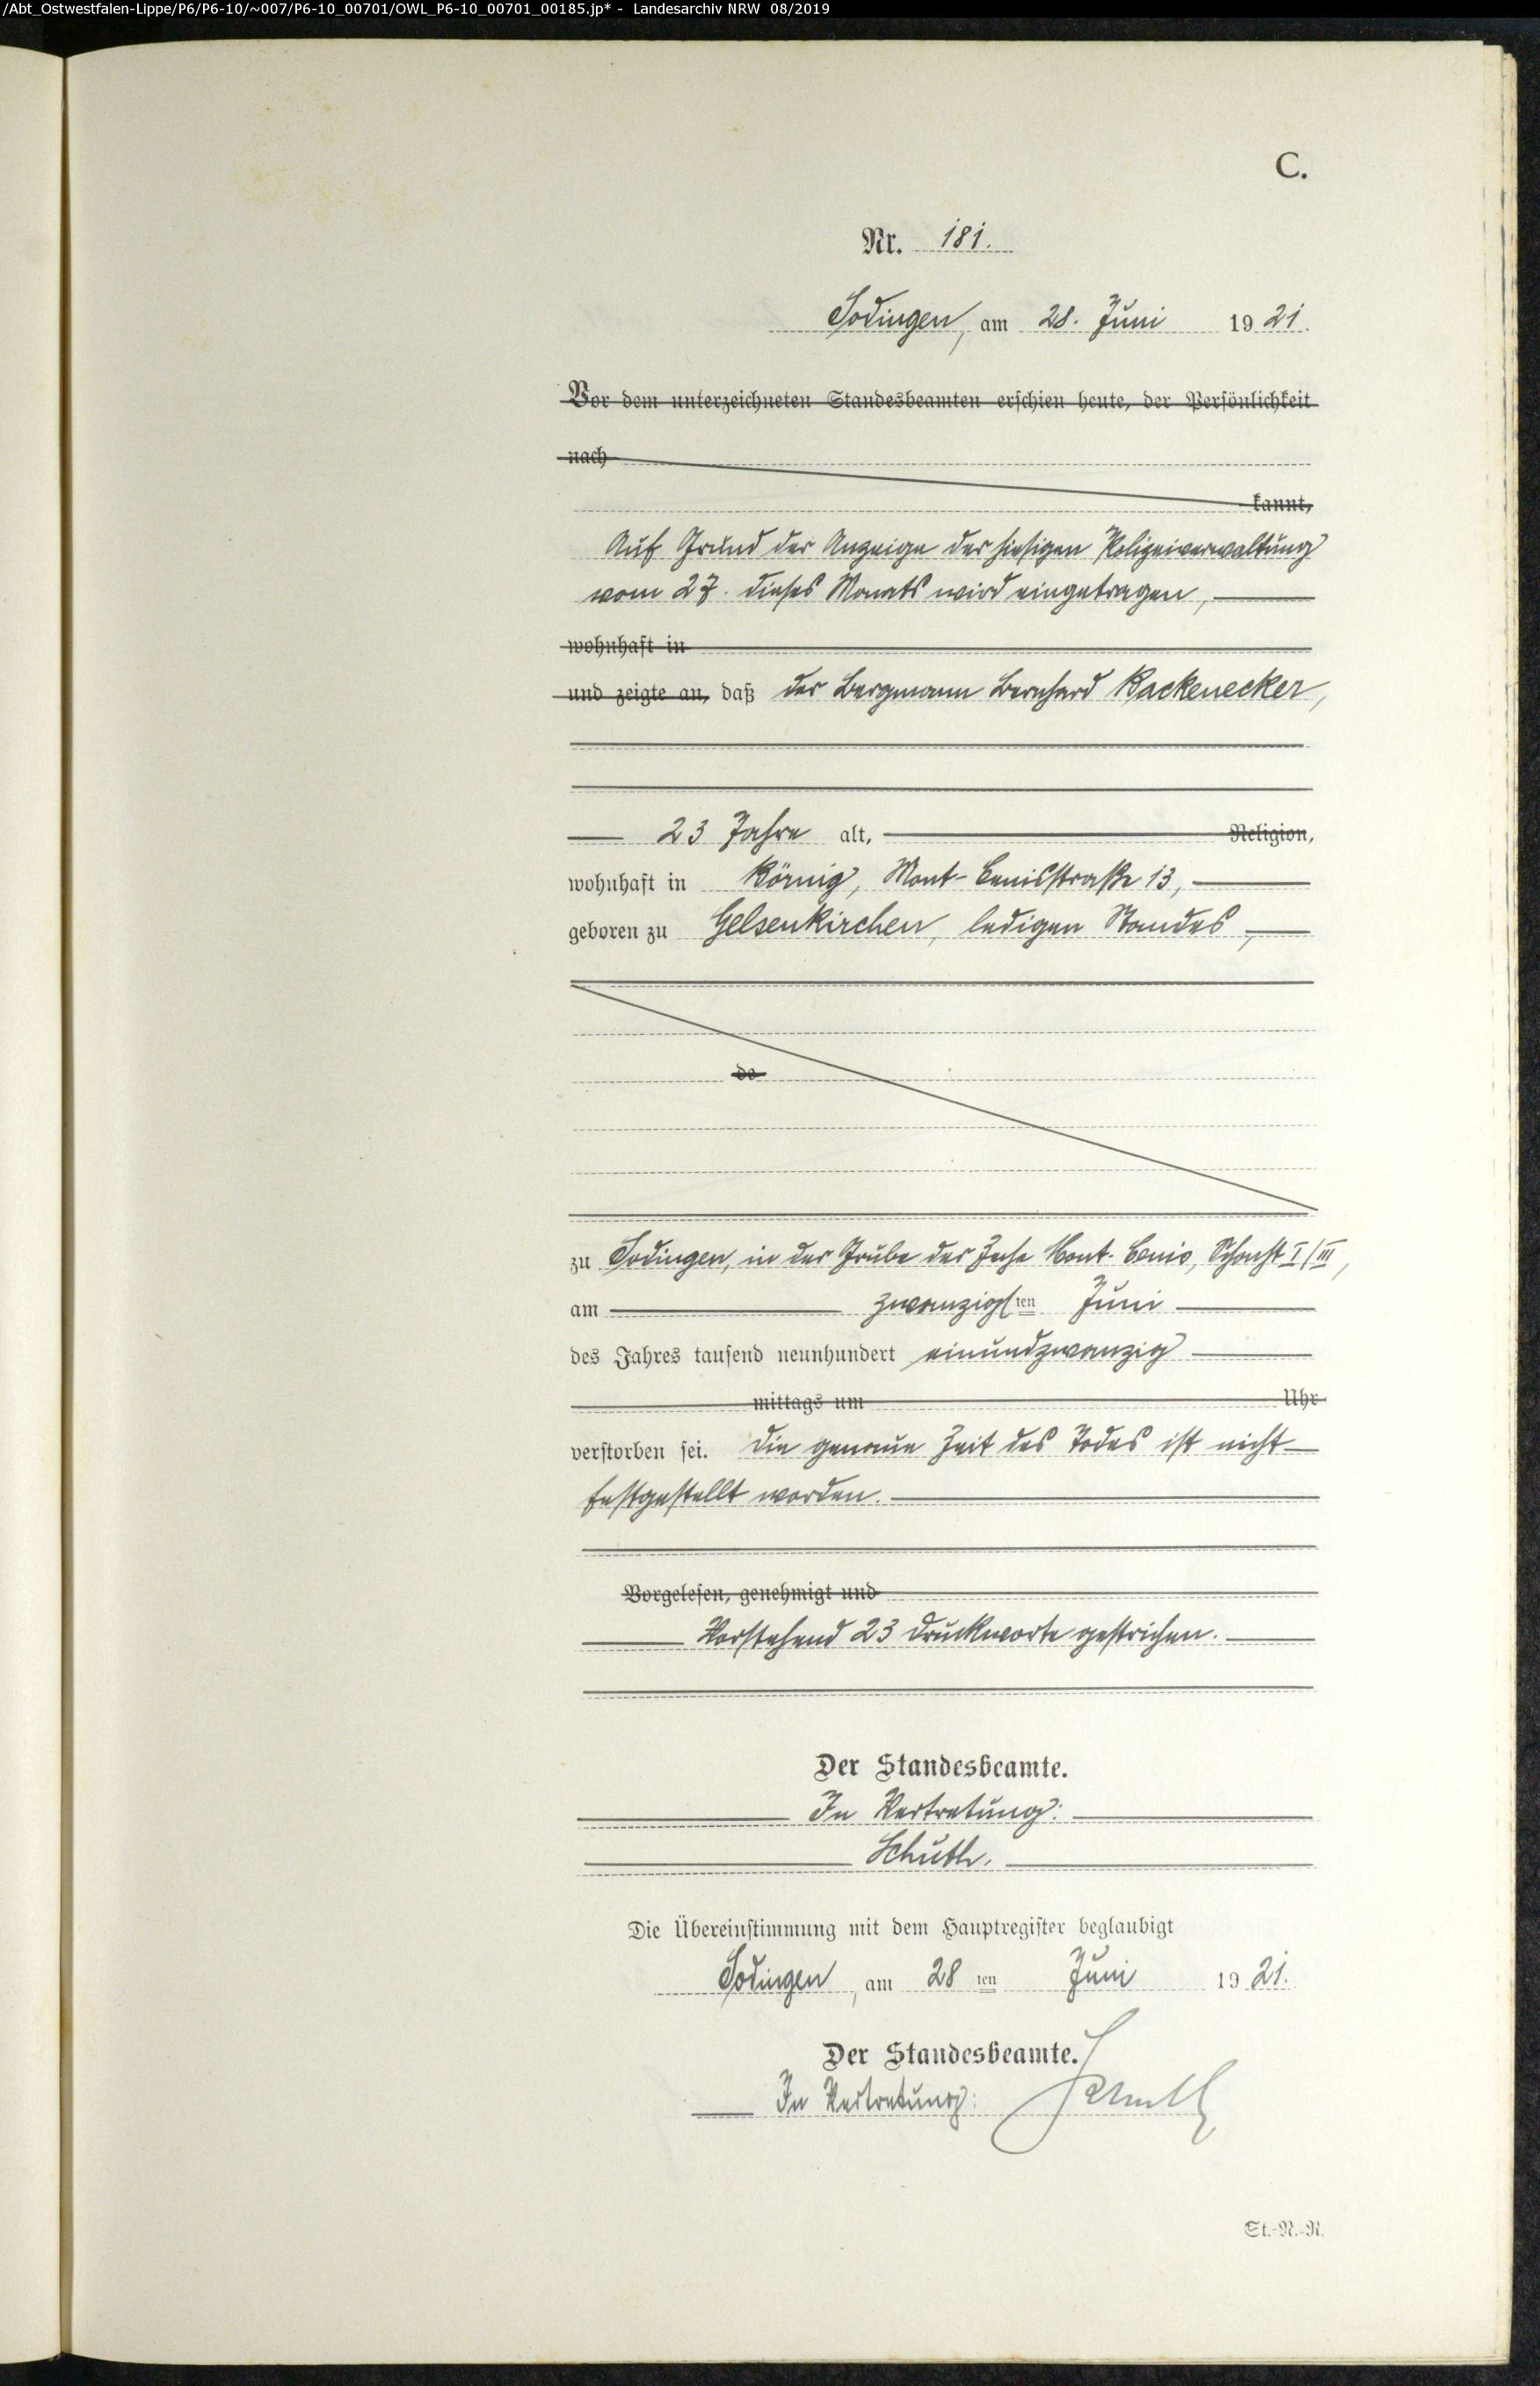 /Abt_Ostwestfalen-Lippe/P6/P6-10/~007/P6-10_00701/OWL_P6-10_00701_00185.jp* - Landesarchiv NRW 08/2019
C.
Nr. 181.
Sodingen, am 28. Juni 1921.
Vor dem unterzeichneten Standesbeamten erschien heute, der Persönlichkeit
nach
kannt,
Auf Grund der Anzeige der hiesigen Polizeiverwaltung
vom 27. dieses Monats wird eingetragen,
wohnhaft in
und zeigte an, daß der Bergmann Bernhard Rackenecker,
23 Jahre alt, Religion,
wohnhaft in Börnig, Mont-Cenisstraße 13,
geboren zu Gelsenkirchen, ledigen Standes,
de
zu Sodingen, in der Grube der Zeche Mont-Cenis, Schacht I/III,
am zwanzigsten Juni
des Jahres tausend neunhundert einundzwanzig
mittags um Uhr
verstorben sei. Die genaue Zeit des Todes ist nicht
festgestellt worden.
Vorgelesen, genehmigt und
Vorstehend 23 Druckworte gestrichen.
Der Standesbeamte.
In Vertretung:
Schuth.
Die Übereinstimmung mit dem Hauptregister beglaubigt
Sodingen, am 28 ten Juni 1921.
Der Standesbeamte.
In Vertretung: Schuth
St.-N.-R.